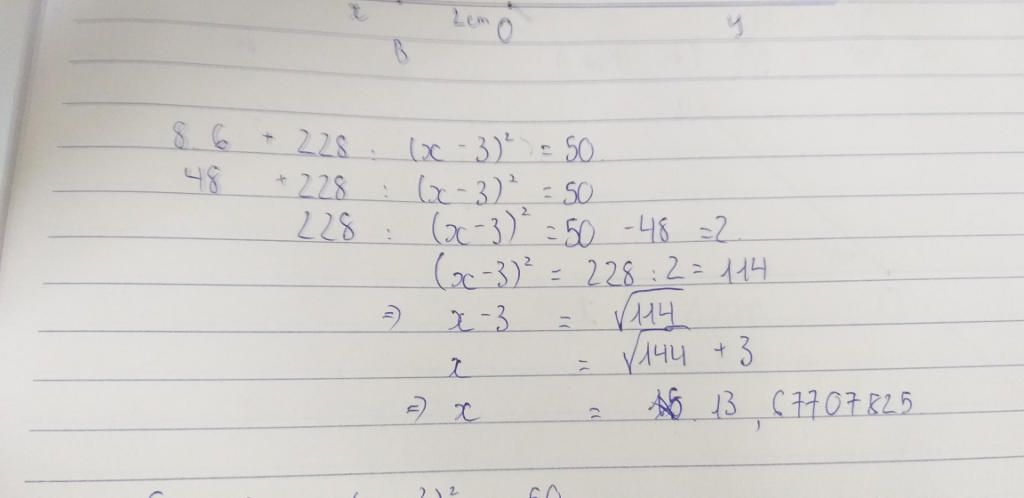 x 2cm O y
B
8 6 + 228 : (x - 3)² = 50
48 + 228 : (x - 3)² = 50
228 : (x - 3)² = 50 - 48 = 2
(x - 3)² = 228 : 2 = 114
⇒ x - 3 = √114
x = √144 + 3
⇒ x = 13,67707825